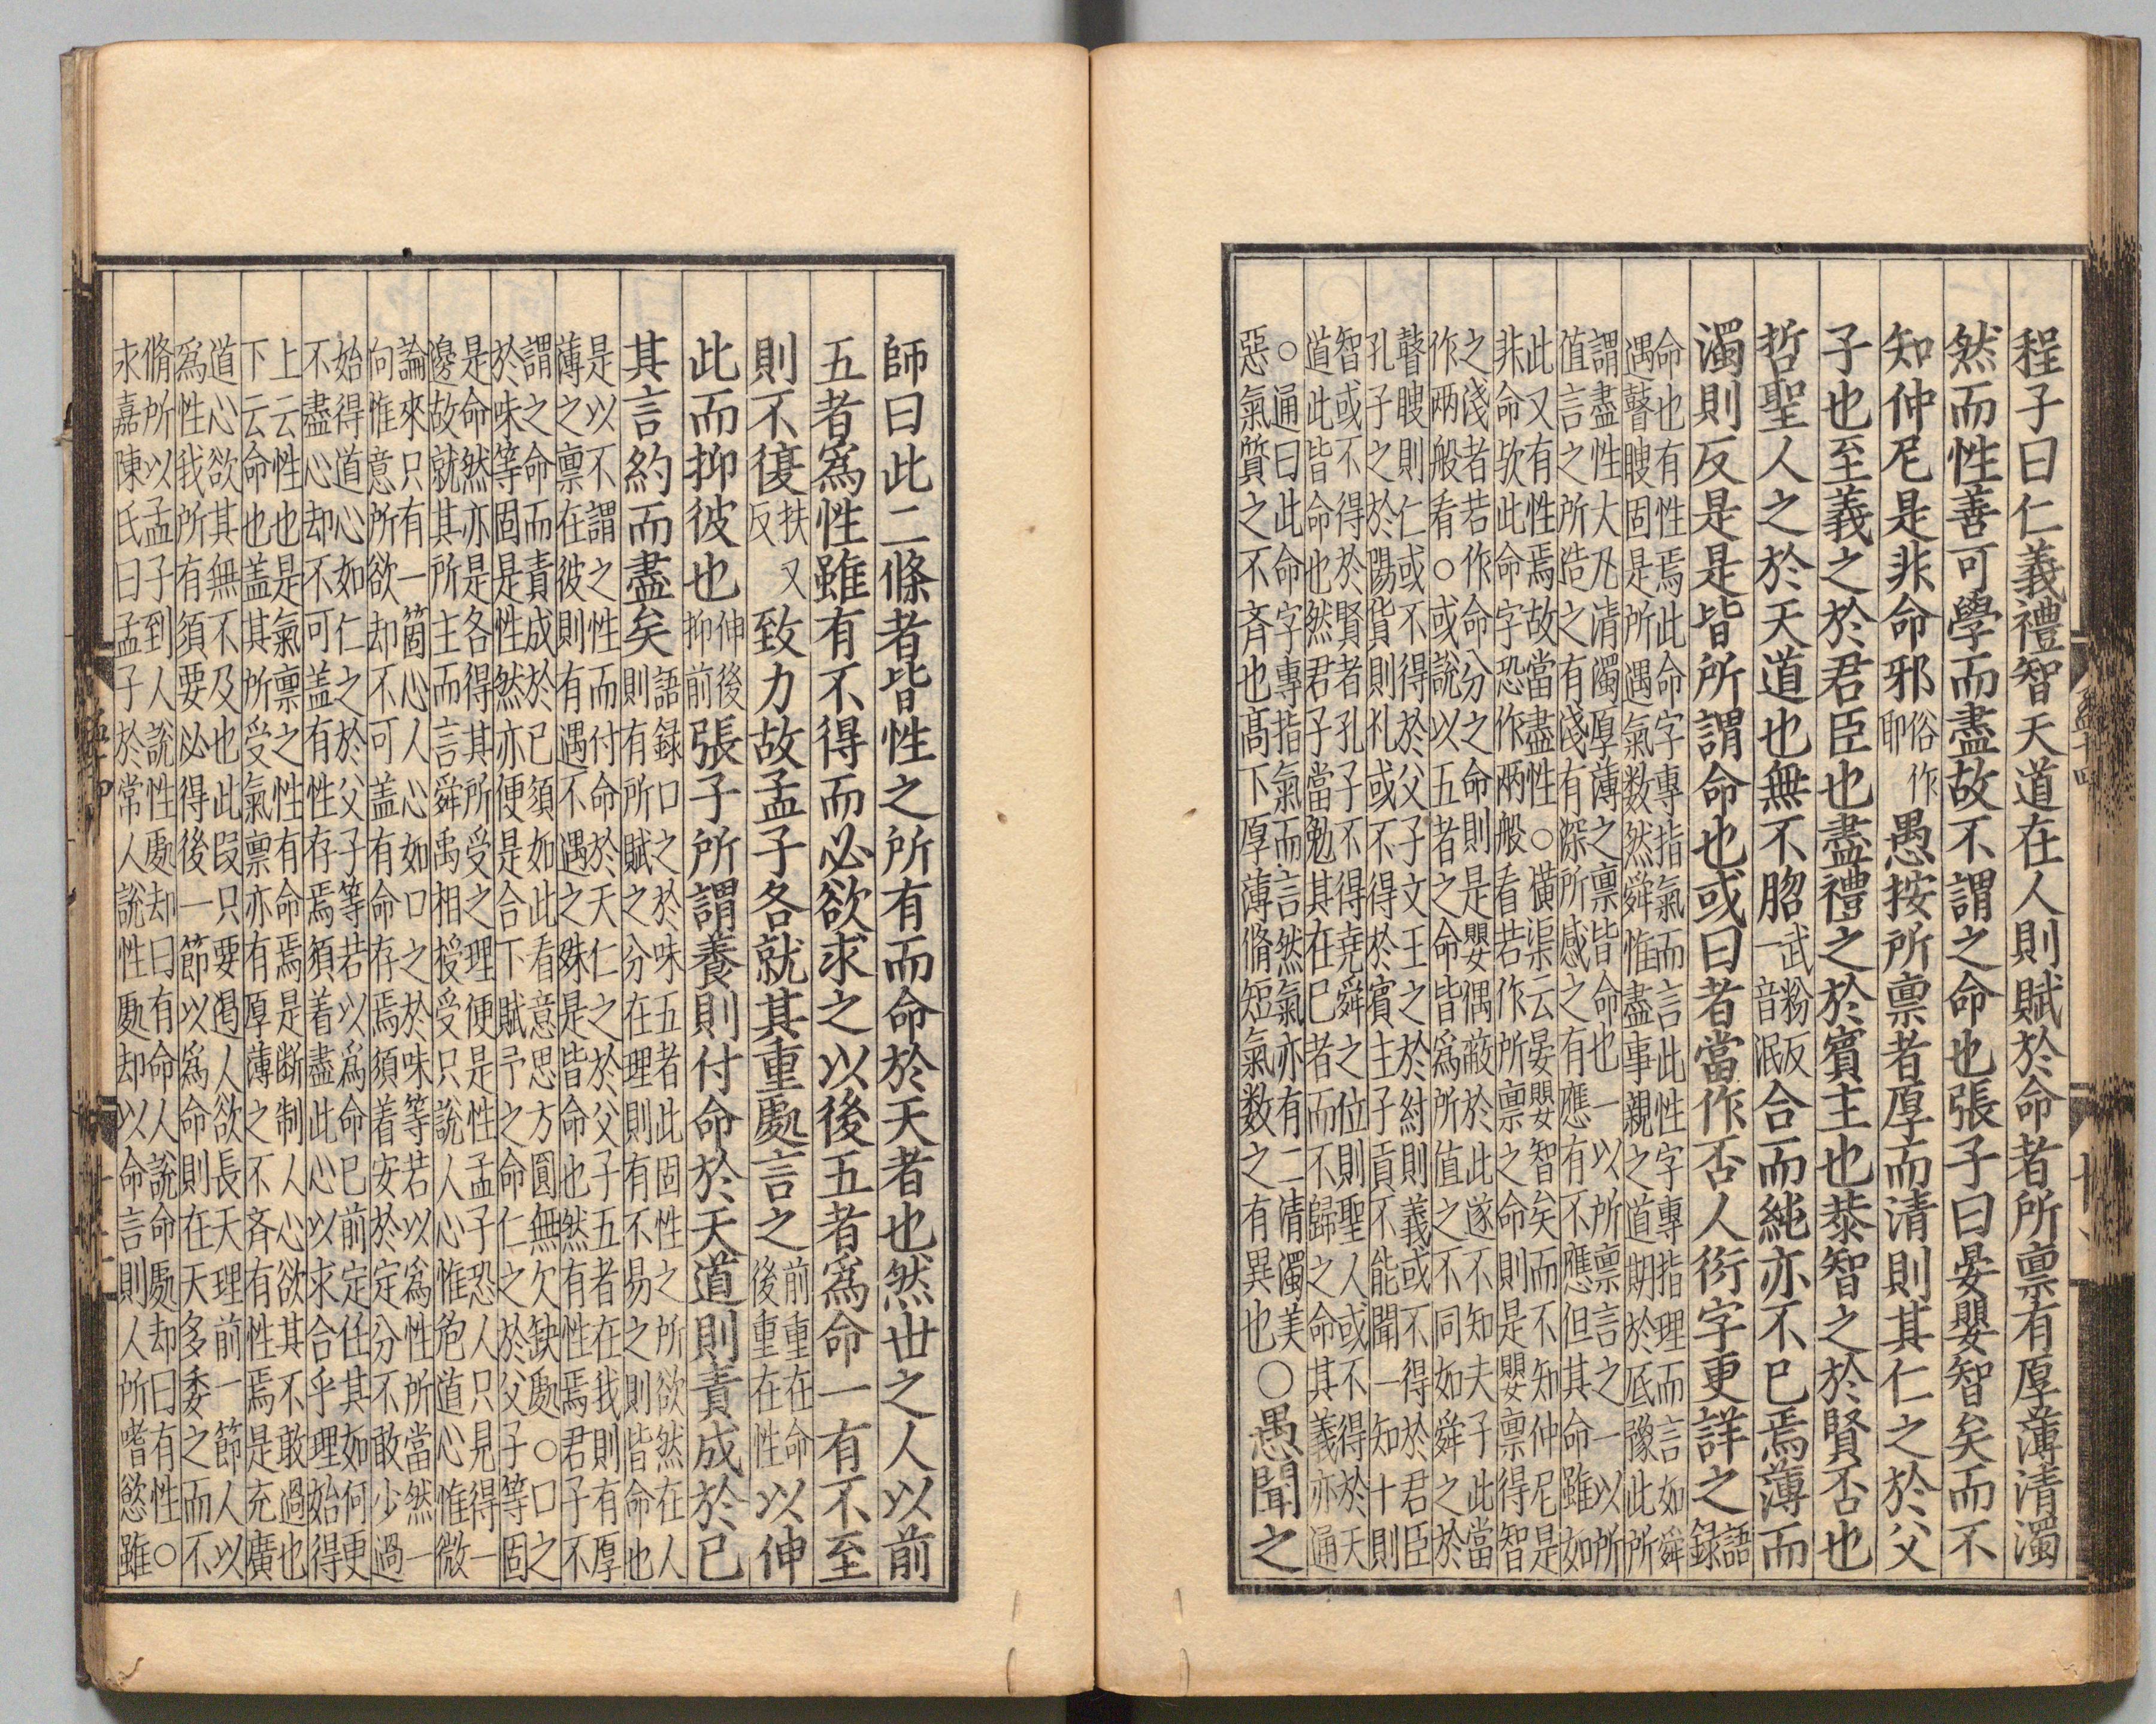 程子曰仁義禮智天道在人則賦於命者所禀有厚薄清濁
然而性善可學而盡故不謂之命也張子曰晏嬰智矣而不
知仲尼是非命邪俗作耶愚按所禀者厚而清則其仁之於父
子也至義之於君臣也盡禮之於賓主也恭智之於賢否也
哲聖人之於天道也無不脗武粉反一音泯合而純亦不已焉薄而
濁則反是是皆所謂命也或曰者當作否人衍字更詳之語録
命也有性焉此命字專指氣而言此性字專指理而言如舜
遇瞽瞍固是所遇氣数然舜惟盡事親之道期於底豫此所
謂盡性大凡清濁厚薄之禀皆命也一以所禀言之一以所
値言之所造之有淺有深所感之有應有不應但其命雖如
此又有性焉故當盡性○横渠云晏嬰智矣而不知仲尼是
非命欤此命字恐作兩般看若作所禀之命則是嬰禀得智
之淺者若作命分之命則是嬰偶蔽於此遂不知夫子此當
作兩般看○或說以五者之命皆爲所値之不同如舜之於
瞽瞍則仁或不得於父子文王之於紂則義或不得於君臣
孔子之於陽貨則礼或不得於賓主子貢不能聞一知十則
智或不得於賢者孔子不得堯舜之位則聖人或不得於天
道此皆命也然君子當勉其在已者而不歸之命其義亦通
○通曰此命字專指氣而言然氣亦有二清濁美
惡氣質之不斉也高下厚薄脩短氣数之有異也○愚聞之
師曰此二條者皆性之所有而命於天者也然世之人以前
五者爲性雖有不得而必欲求之以後五者爲命一有不至
則不復扶又反致力故孟子各就其重處言之前重在命後重在性以伸
此而抑彼也伸後抑前張子所謂養則付命於天道則責成於已
其言約而盡矣語録口之於味五者此固性之所欲然在人
則有所賦之分在理則有不易之則皆命也
是以不謂之性而付命於天仁之於父子五者在我則有厚
薄之禀在彼則有遇不遇之殊是皆命也然有性焉君子不
謂之命而責成於已須如此看意思方圓無欠缺處○口之
於味等固是性然亦便是合下賦予之命仁之於父子等固
是命然亦是各得其所受之理便是性孟子恐人只見得一
邊故就其所主而言舜禹相授受只說人心惟危道心惟微
論來只有一箇心人心如口之於味等若以爲性所當然一
向惟意所欲却不可盖有命存焉須着安於定分不敢少過
始得道心如仁之於父子等若以爲命已前定任其如何更
不盡心却不可盖有性存焉須着盡此心以求合乎理始得
上云性也是氣禀之性有命焉是断制人心欲其不敢過也
下云命也盖其所受氣禀亦有厚薄之不斉有性焉是充廣
道心欲其無不及也此段只要遏人欲長天理前一節人以
爲性我所有須要必得後一節以爲命則在天多委之而不
脩所以孟子到人說性處却曰有命人說命處却曰有性○
求嘉陳氏曰孟子於常人說性處却以命言則人所嗜慾雖